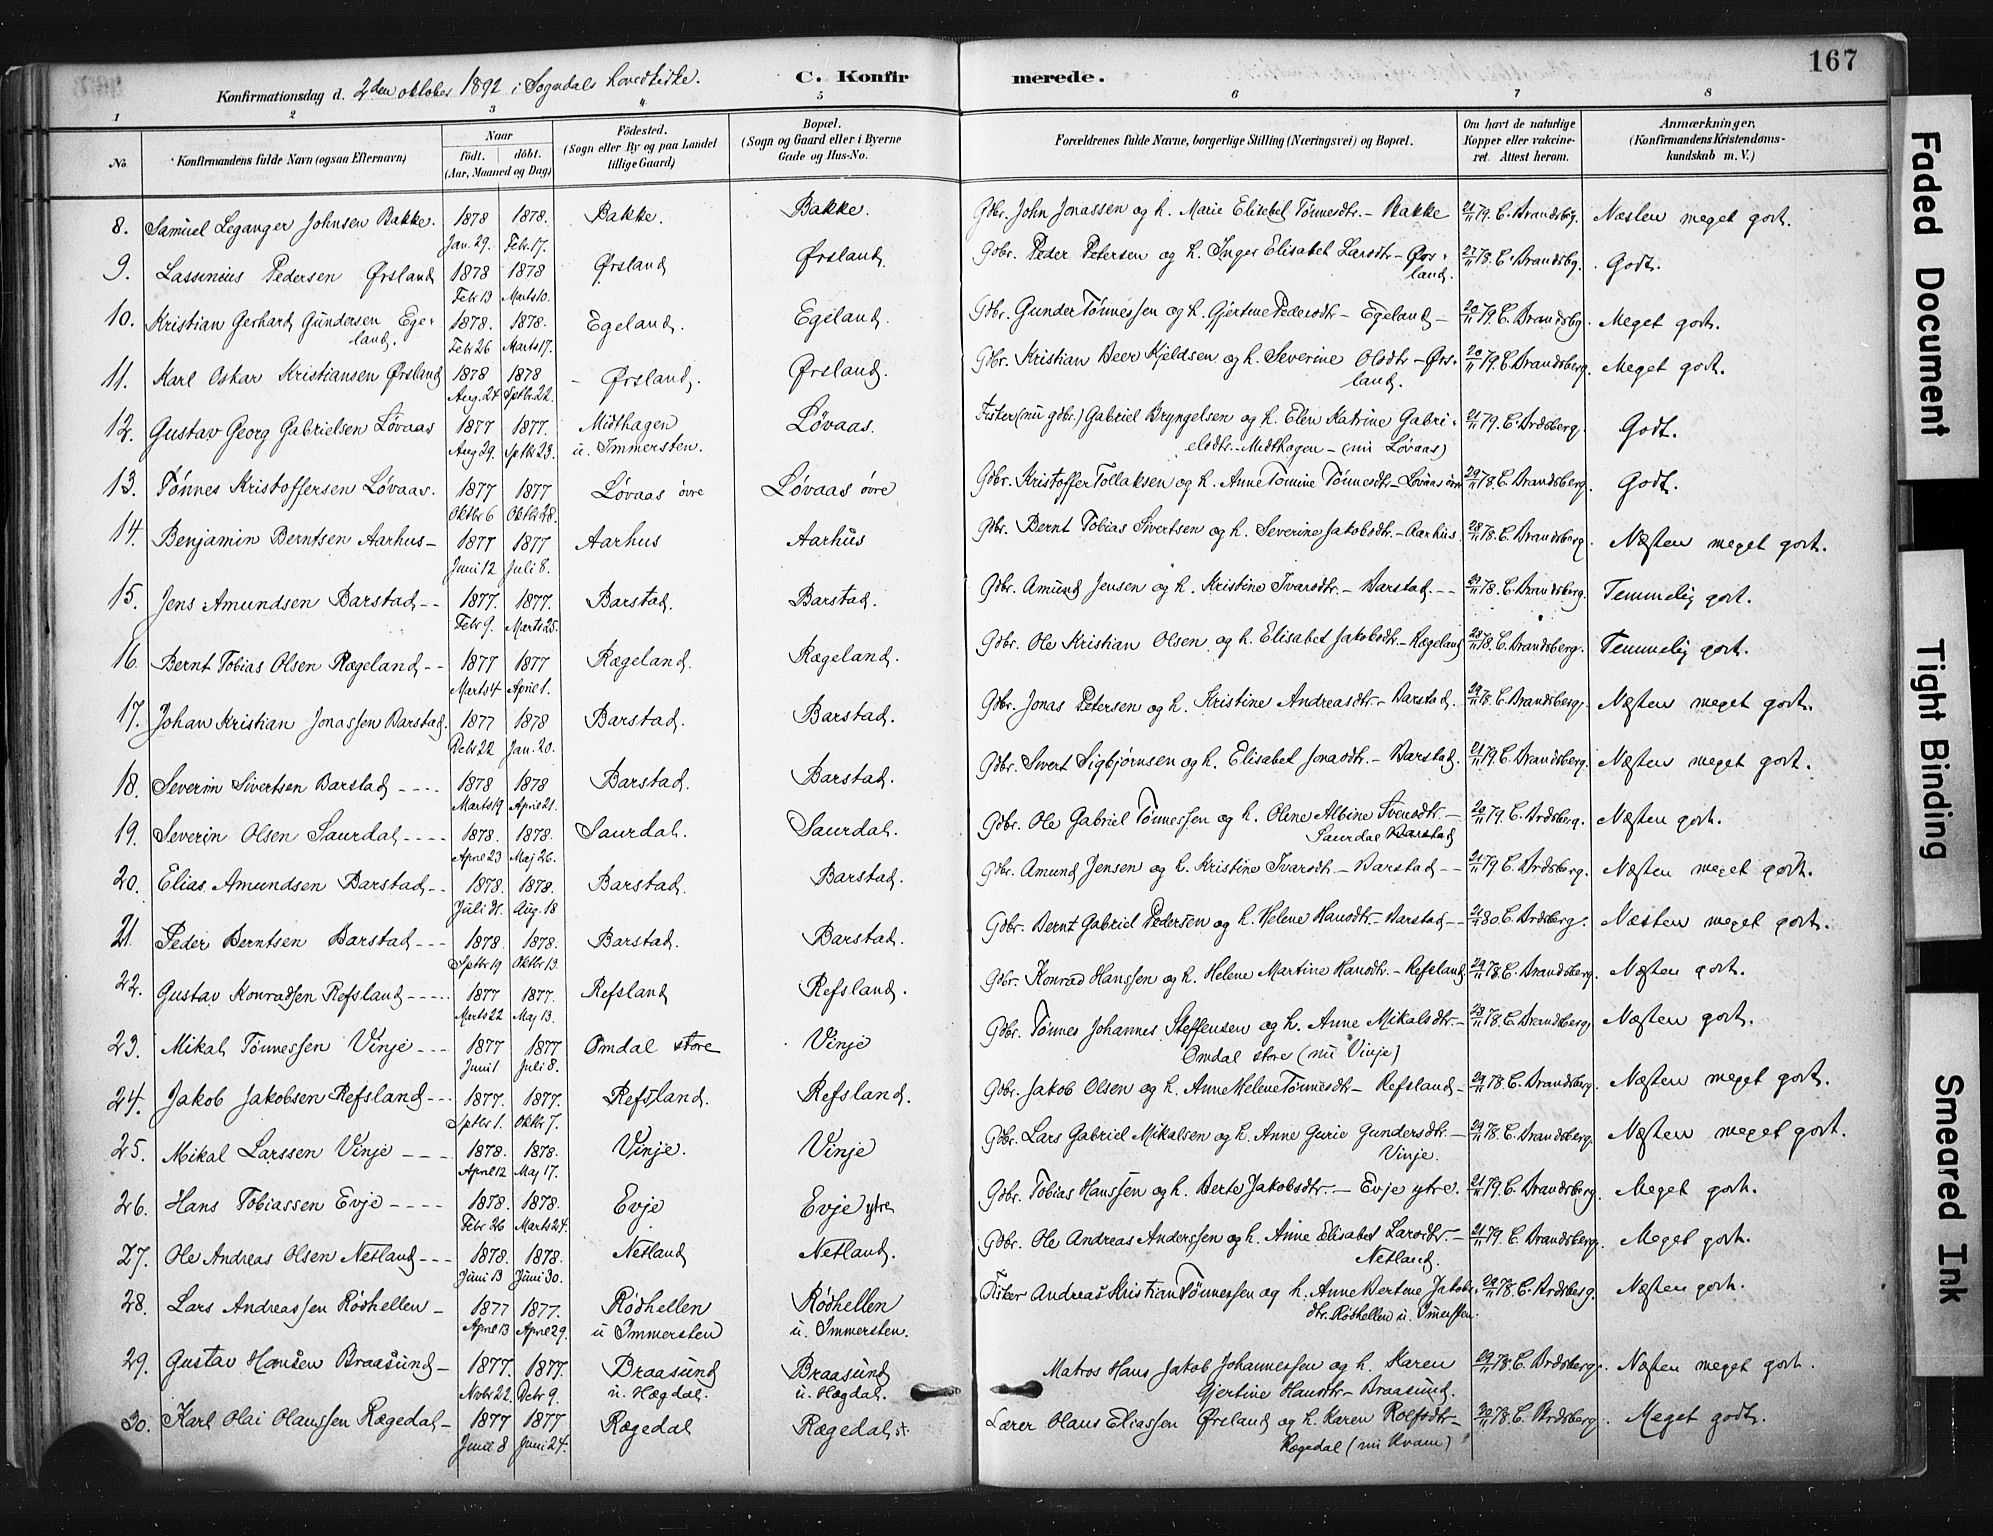 167
Konfirmationsdag d. 2den oktober 1892 i Sogndals hovedkirke. C. Konfir merede.
1 2 3 4 5 6 7 8
No. Konfirmandens fulde Navn (ogsaa Efternavn) Naar født. døbt. (Aar, Maaned og Dag) Fødested. (Sogn eller By og paa Landet tillige Gaard) Bopæl. (Sogn og Gaard eller i Byerne Gade og Hus-No. Forældrenes fulde Navne, borgerlige Stilling (Næringsvei) og Bopæl. Om havt de naturlige Kopper eller vakcineret. Attest herom. Anmærkninger. (Konfirmandens Kristendomskundskab m. V.)
8. Samuel Leganger Johnsen Bakke. 1878 Jan. 29. 1878. Febr. 17. Bakke. Bakke. Gdbr. John Jonassen og h. Marie Elisabet Tønnesdtr. – Bakke 21/11 79. C. Brandsbg. Næsten meget godt.
9. Lassenius Pedersen Ørsland 1878 Febr 13 1878 Marts 10. Ørsland Ørsland. Gdbr. Peder Petersen og h. Inger Elisabet Larsdtr – Ørsland. 27/11 78. C. Brandsbg. Godt.
10. Kristian Gerhard Gundersen Egeland. 1878. Febr 26 1878. Marts 17. Egeland. Egeland. Gdbr. Gunder Tønnessen og h. Gjertine Pedersdtr – Egeland – 20/11 79. C. Brandsbg. Meget godt.
11. Karl Oskar Kristiansen Ørsland 1878 Aug. 24 1878 Sptbr. 22. – Ørsland. Ørsland. Gdbr. Kristian Beer Kjeldsen og h. Severine Olsdtr – Ørsland. 20/11 79. C. Brandsberg. Meget godt.
12. Gustav Georg Gabrielsen Løvaas 1877 Aug 29. 1877. Sptbr 23. Midthagen u. Immersten. Løvaas. Fisker (nu gdbr.) Gabriel Bryngelsen og h. Elen Katrine Gabrielsdtr. Midthagen – (nu Løvaas) 21/11 79. C. Brdsberg. Godt.
13. Tønnes Kristoffersen Løvaas. 1877 Oktbr 6 1877 Oktbr 28. Løvaas øvre Løvaas øvre Gdbr. Kristoffer Tollaksen og h. Anne Tomine Tønnesdtr – Løvaas øvre 29/11 78. C. Brandsberg. Godt.
14. Benjamin Berntsen Aarhus – 1877 Juni 12 1877 Juli 8. Aarhus Aarhus Gdbr. Bernt Tobias Sivertsen og h. Severine Jakobsdtr. – Aarhus. 28/11 78. C. Brandsberg. Næsten meget godt.
15. Jens Amundsen Barstad – – 1877. Febr 9. 1877. Marts 25. Barstad. Barstad. Gdbr. Amund Jensen og h. Kristine Ivarsdtr. – Barstad. – – 29/11 78. C. Brandsberg. Temmelig godt.
16. Bernt Tobias Olsen Rægeland – – 1877 Marts 4 1877 April 1. Rægeland. Rægeland. Gdbr. Ole Kristian Olsen og h. Elisabet Jakobsdtr – Rægeland 28/11 78. C. Brandsberg. Temmelig godt.
17. Johan Kristian Jonassen Barstad. 1877 Debr 22 1878 Jan. 20. Barstad. Barstad. Gdbr. Jonas Petersen og h. Kristine Andreasdtr. – Barstad. 29/11 78. C. Brandsberg. Næsten meget godt.
18. Severin Sivertsen Barstad – – – – 1878 Marts 19 1878 April 21. Barstad. Barstad. Gdbr. Sivert Sigbjørnsen og h. Elisabet Jonasdtr. – Barstad. 21/11 79. C. Brandsberg. Næsten meget godt.
19. Severin Olsen Saurdal – – – – 1878. April 23 1878. Maj 26. Saurdal. Saurdal. Gdbr. Ole Gabriel Tønnessen og h. Olene Albine Svensdtr. – Saurdal Barstad 20/11 79. C. Brdsberg. Næsten godt.
20. Elias Amundsen Barstad – – 1878. Juli 21. 1878. Aug. 18 Barstad. Barstad. Gdbr. Amund Jensen og h. Kristine Ivarsdtr. – Barstad – – 21/11 79 C. Brdsberg. Næsten meget godt.
21. Peder Berntsen Barstad – – – 1878. Sptbr 19 1878. Oktbr 13. Barstad. Barstad. Gdbr. Bernt Gabriel Pedersen og h. Helene Hansdtr. – Barstad – – 21/11 80 C. Brdsberg. Næsten meget godt.
22. Gustav Konradsen Refsland – – – – 1877 Marts 22 1877. Maj 13. Refsland Refsland. Gdbr. Konrad Hanssen og h. Helene Martine Hansdtr. – Refsland 29/11 78. C. Brandsberg. Næsten godt.
23. Mikal Tønnessen Vinje – – – 1877 Juni 1 1877 Juli 8. Omdal store Vinje Gdbr. Tønnes Johannes Steffensen og h. Anne Mikalsdtr. – Omdal store (nu Vinje) 28/11 78. C. Brandsberg. Næsten godt.
24. Jakob Jakobsen Refsland – – – 1877. Sptbr 1. 1877. Oktbr 7. Refsland. Refsland. Gdbr. Jakob Olsen og h. Anne Helene Tønnesdtr – Refsland – 29/11 78. C. Brandsberg. Næsten meget godt.
25. Mikal Larssen Vinje – – – – 1878. April 12 1878. Maj 17. Vinje. Vinje Gdbr. Lars Gabriel Mikalsen og h. Anne Gurie Gundersdtr. – Vinje. 29/11 78. C. Brandsberg. Næsten meget godt.
26. Hans Tobiassen Evje – – – – 1878. Febr 26 1878. Marts 24. Evje Evje ytre Gdbr. Tobias Hanssen og h. Berte Jakobsdtr. – Evje ytre. 21/11 79. C. Brandsberg. Meget godt.
27. Ole Andreas Olsen Netland – – – 1878. Juni 13 1878. Juni 30. Netland Netland. Gdbr. Ole Andreas Anderssen og h. Anne Elisabet Larsdtr. – Netland. 21/11 79. C. Brandsberg. Meget godt.
28. Lars Andreassen Rødhellen – 1877 April 13 1877. April 29. Rødhellen u Immersten Rødhellen u. Immersten. Fisker Andreas Kristian Tønnessen og h. Anne Bertine Jakobsdtr. Rødhellen u. Immersten. 29/11 78. C. Brdsberg. Næsten godt.
29. Gustav Hansen Braasund – 1877. Novbr 22. 1877. Debr 9. Braasund u. Hægdal. Braasund u. Hægdal. Matros Hans Jakob Johannessen og h. Karen Gjertine Hansdtr – Braasund. 29/11 78. C. Brdsberg. Næsten meget godt.
30. Karl Olai Olaussen Rægedal – 1877 Juni 8 1877 Juni 24. Rægedal Rægedal st. Lærer Olaus Eliassen Ørsland og h. Karen Rolfsdtr – Rægedal (nu Kvam) 30/11 78. C. Brdsberg. Meget godt.
Faded Document
Tight Binding
Smeared Ink